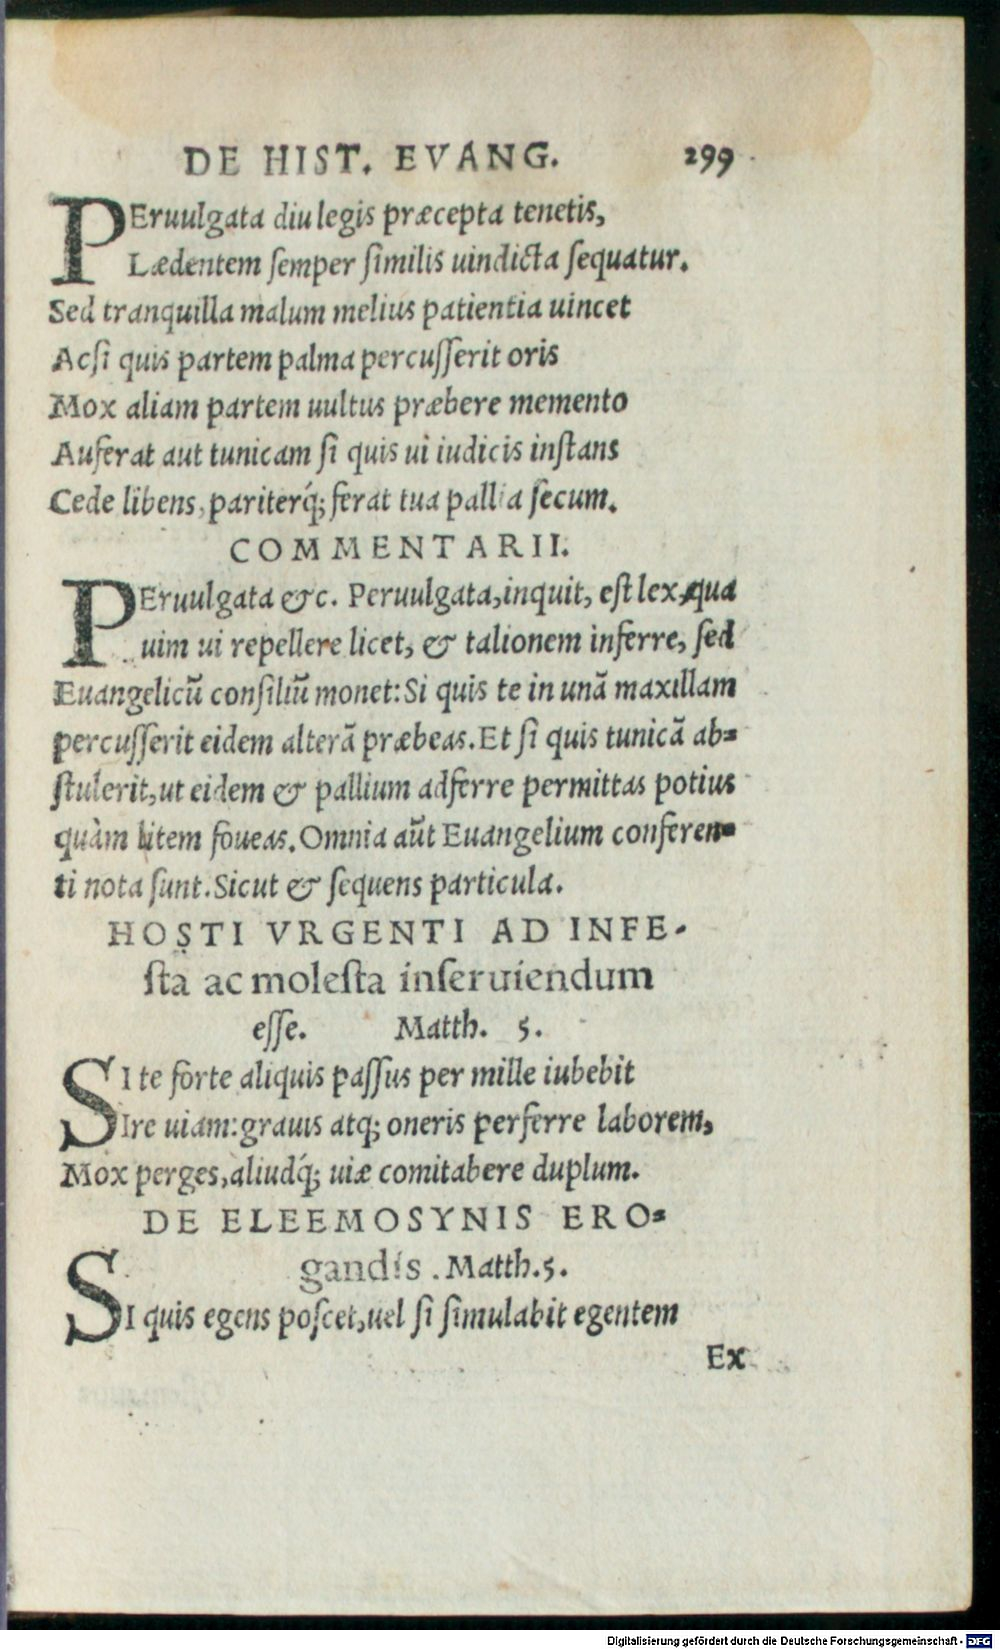 DE HIST. EVANG. 299
PEruulgata diu legis præcepta tenetis,
Lædentem ſemper ſimilis uindicta ſequatur.
Sed tranquilla malum melius patientia uincet
Acſi quis partem palma percuſſerit oris
Mox aliam partem uultus præbere memento
Auferat aut tunicam ſi quis ui iudicis inſtans
Cede libens, pariterq́; ferat tua pallia ſecum.
COMMENTARII.
PEruulgata &c. Peruulgata, inquit, eſt lex, qua
uim ui repellere licet, & talionem inferre, ſed
Euangelicū conſiliū monet: Si quis te in unā maxillam
percuſſerit eidem alterā præbeas. Et ſi quis tunicā ab=
ſtulerit, ut eidem & pallium adferre permittas potius
quàm litem foueas. Omnia aūt Euangelium conferen=
ti nota ſunt. Sicut & ſequens particula.
HOSTI VRGENTI AD INFE-
ſta ac moleſta inſeruiendum
eſſe. Matth. 5.
SI te forte aliquis paſſus per mille iubebit
Ire uiam: grauis atq; oneris perferre laborem,
Mox perges, aliudq́; uiæ comitabere duplum.
DE ELEEMOSYNIS ERO=
gandis. Matth. 5.
SI quis egens poſcet, uel ſi ſimulabit egentem
Ex
Digitalisierung gefördert durch die Deutsche Forschungsgemeinschaft - DFG